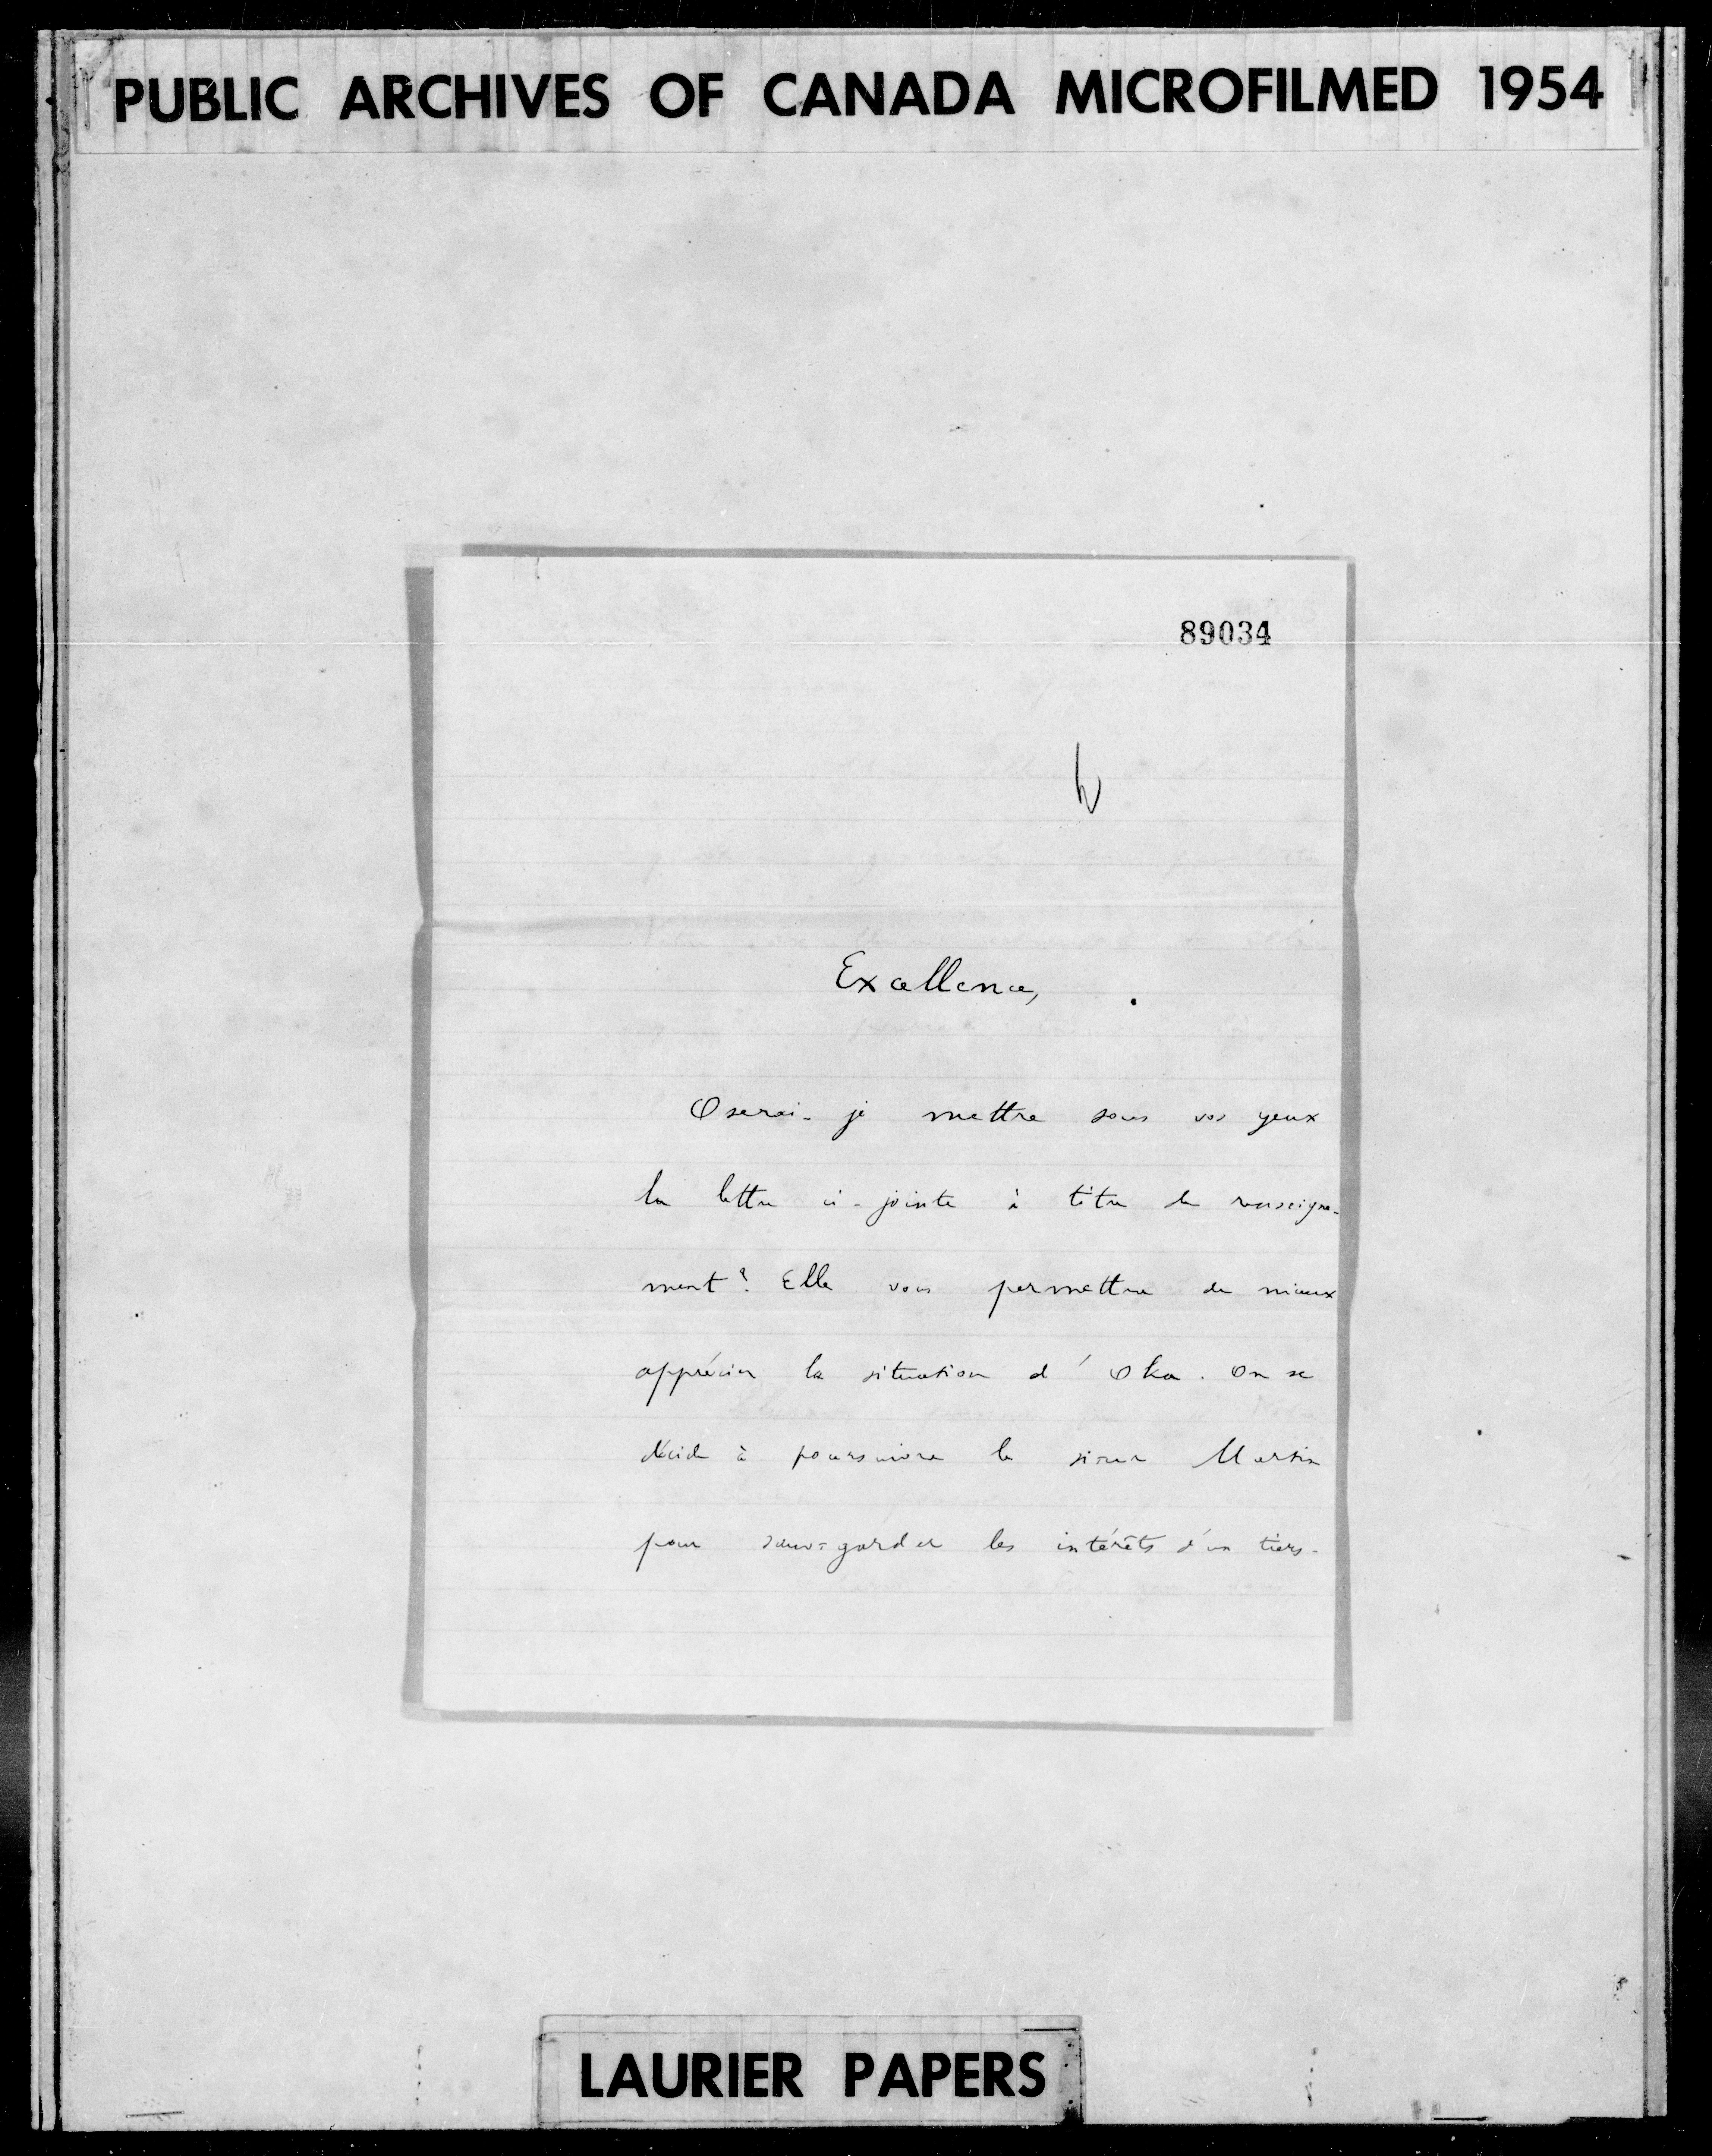 PUBLIC ARCHIVES OF CANADA MICROFILMED 1954
89034
Excellence,
Oserai-je mettre sous vos yeux
la lettre ci-jointe à titre de renseigne-
ment? Elle vous permettra de mieux
apprécier la situation d'Oka. On se
décide à poursuivre le sieur Martin
pour sauvegarder les intérêts d'un tiers.
LAURIER PAPERS